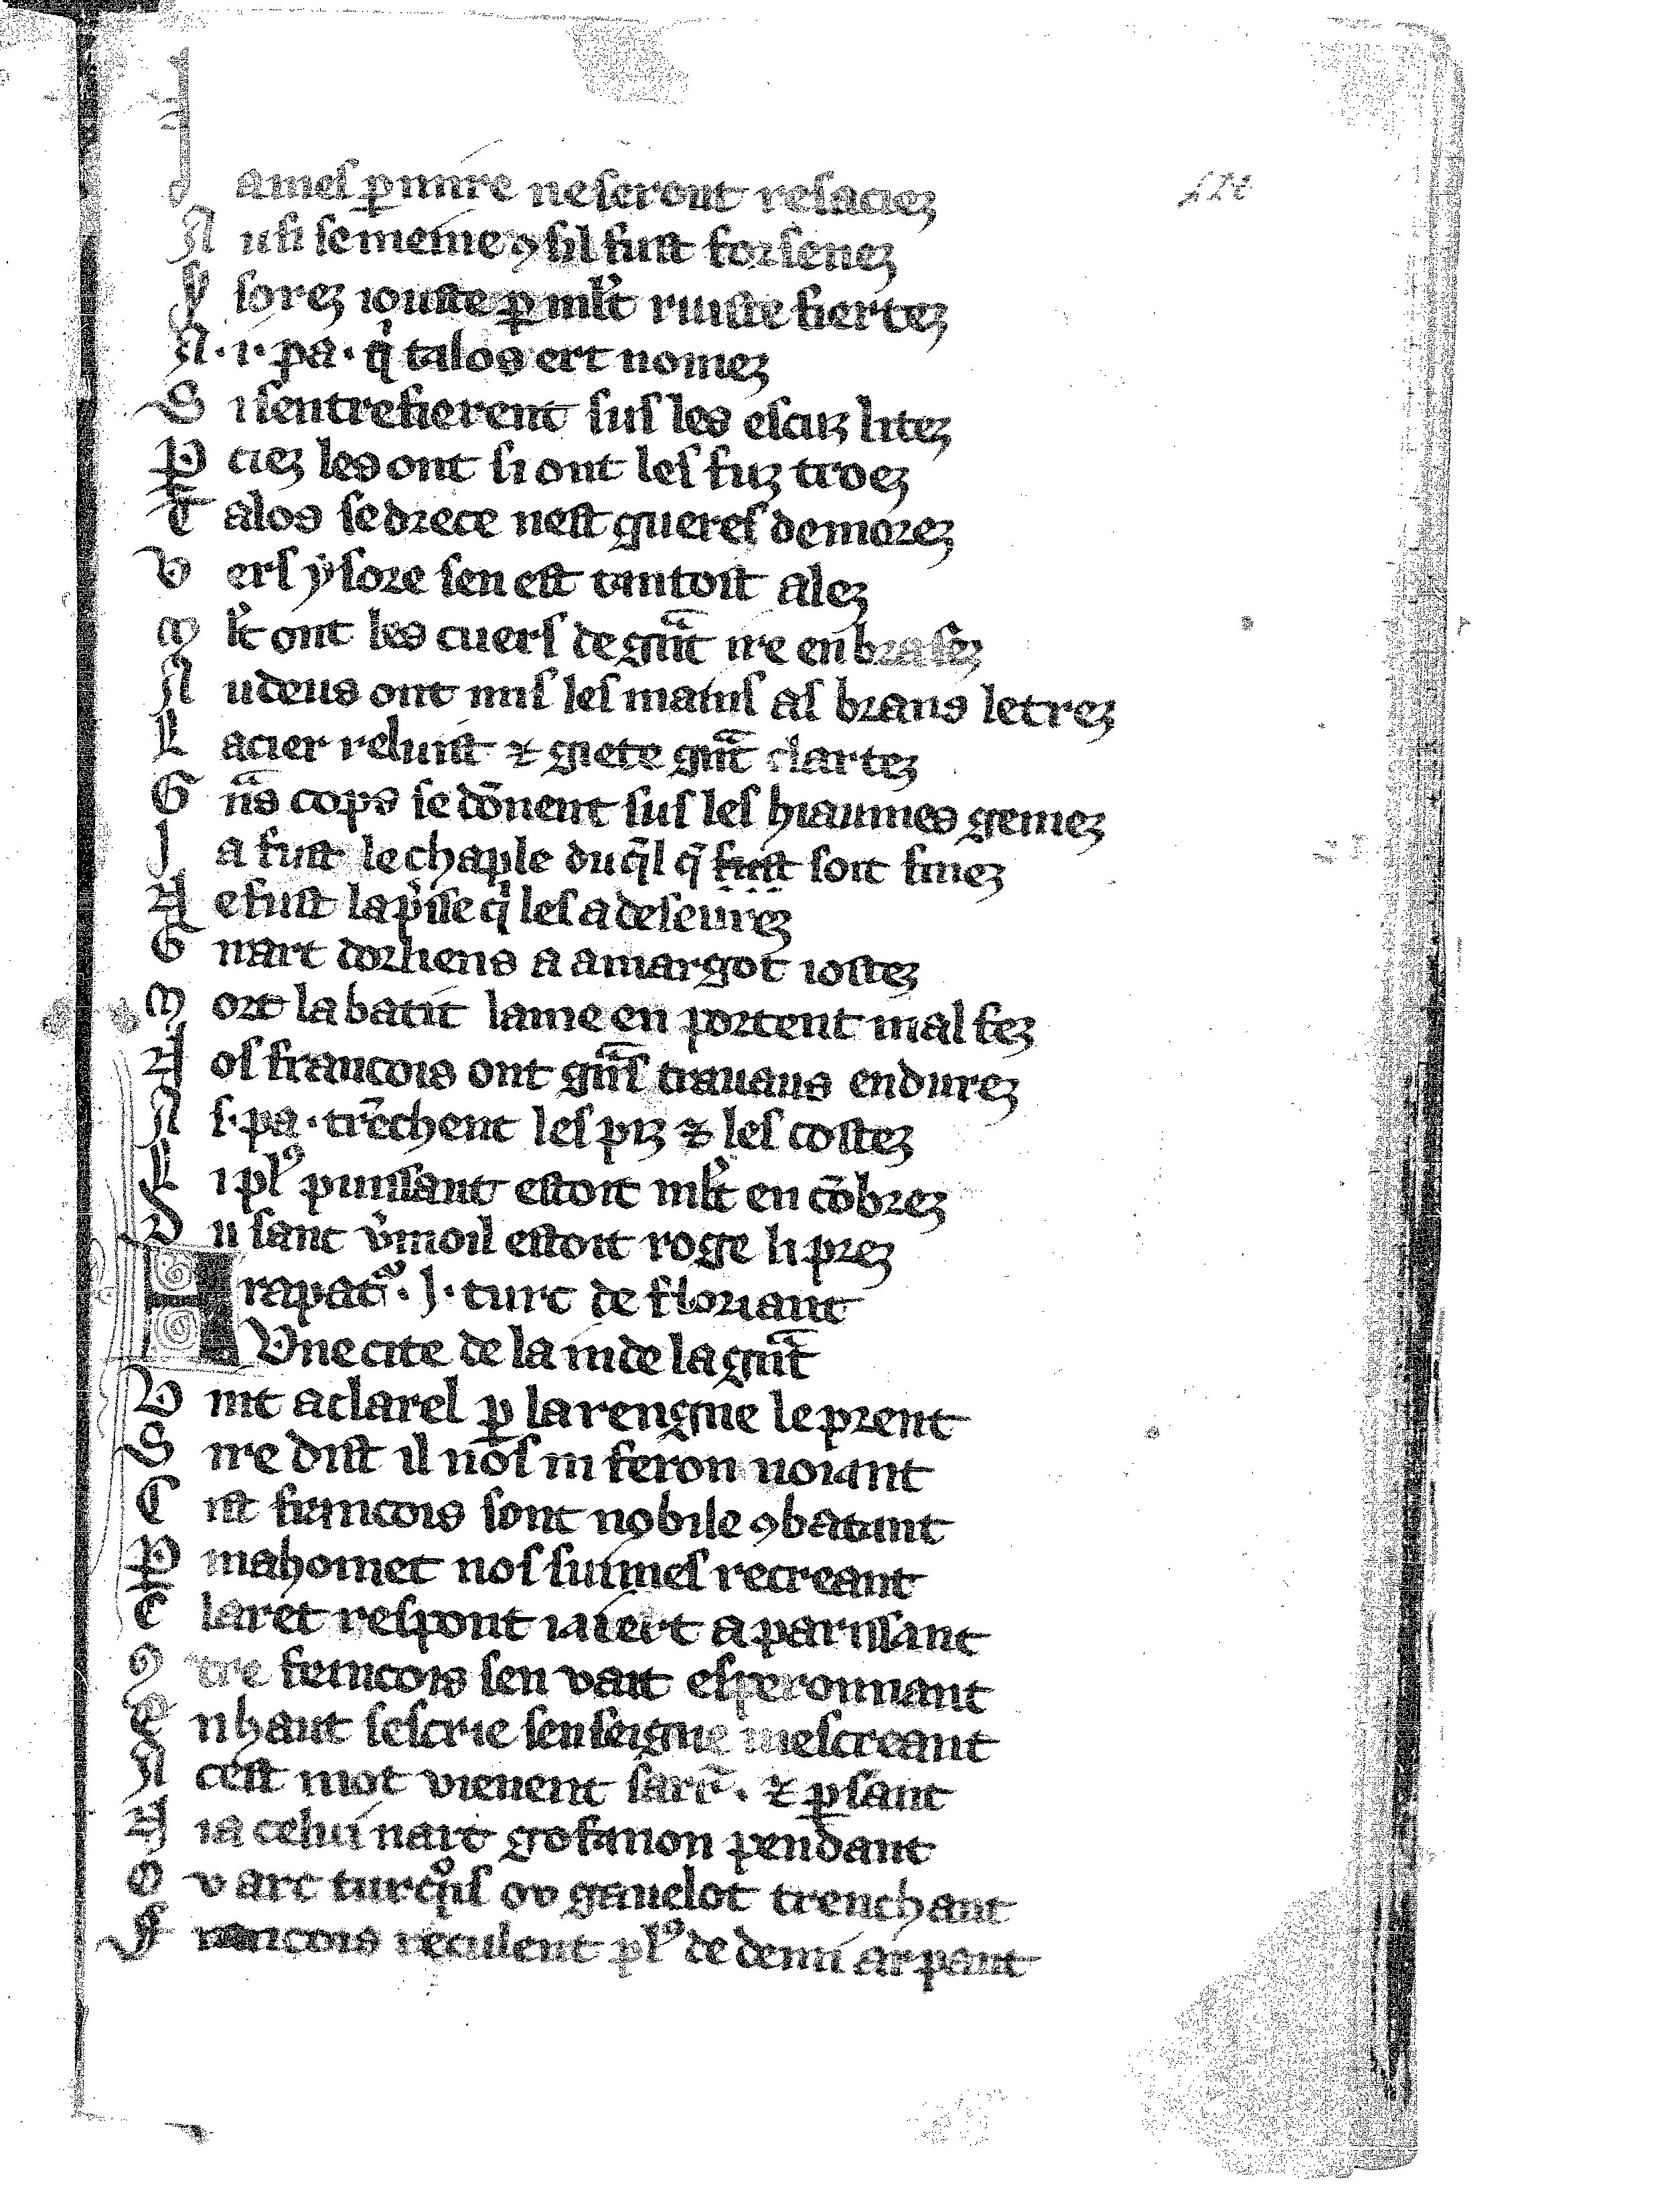 J ameſ ꝑ nnire ne ſeront reſaciez
A uſi ſe meine ꝯ ſil fuſt forſenez
Y ſorez iouſte ꝑ ml̃t ruiſte fiertez
A · i · pa · qͥ talos ert nomez
S i ſentrefierent ſuſ les eſcuz litez
P ciez les ont ſi ont leſ fuz troez
T alos ſe drece neſt guereſ demorez
V erſ yſore ſen eſt tantoſt alez
M l̃t ont les cuerſ de gn̾t ire enbraſez
A udeus ont miſ leſ mainſ aſ brans letrez
L acier reluiſt ⁊ giete gn̾t clartez
G n̾s cops ſe dōnent ſuſ leſ hiaumes gemez
J a fuſt le chaple du q̃l q̃ fuſt ſoit finez
N e fuſt la pͥſe qͥ leſ a deſeurez
G uiart dorliens a amargot ioſtez
M ort labatit lame en portent malfez
N oſ francois ont gn̾ſ trauaus endurez
A ſ · pa · trēchent leſ piz ⁊ leſ coſtez
L i plꝰ puiſſant eſtoit ml̃t encōbrez
D u ſanc v̾moil eſtoit roge li prez
A rapatᷣ · J · turc de floriant
Vne cite de la inde la gn̾t
V int a clarel ꝑ la rengne le prent
S ire diſt il nōſ ni feron noiant
C iſt francois ſont nobile ꝯbatant
P mahomet noſ ſuimeſ recreant
C laret reſpont ia iert aparиſſant
ꝯ tre francois ſen vait eſperonnant
E n haut ſeſcrie ſenſeigne meſcreant
A ceſt mot vienent ſarr̃ · ⁊ ꝑſant
N ia celui nait gofanon pendant
O v arc turqͦiſ ov gauelot trenchant
F rancois reculent plꝰ de demi arpant